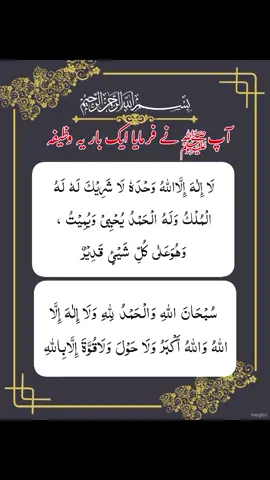 بِسْمِ اللهِ الرَّحْمٰنِ الرَّحِيْمِ
آپ ﷺ نے فرمایا ایک بار یہ وظیفہ
لَا إِلٰهَ إِلَّا اللهُ وَحْدَهٗ لَا شَرِيْكَ لَهٗ لَهُ
الْمُلْكُ وَلَهُ الْحَمْدُ يُحْيِيْ وَيُمِيْتُ ،
وَهُوَ عَلٰى كُلِّ شَيْئٍ قَدِيْرٌ
سُبْحَانَ اللهِ وَالْحَمْدُ لِلّٰهِ وَلَا إِلٰهَ إِلَّا
اللهُ وَاللهُ أَكْبَرُ وَلَا حَوْلَ وَلَا قُوَّةَ إِلَّا بِاللهِ